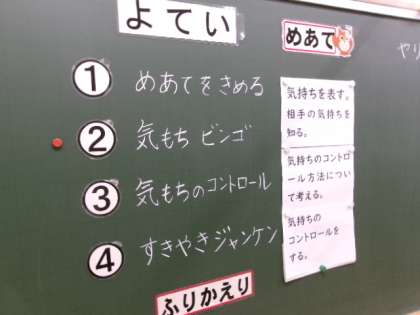 よてい
めあて
やり
① めあてをきめる
② 気もち ビンゴ
③ 気もちのコントロール
④ すきやきジャンケン
気持ちを表す。
相手の気持ちを
知る。
気持ちのコントロ
ール方法につい
て考える。
気持ちの
コントロールを
する。
ふりかえり